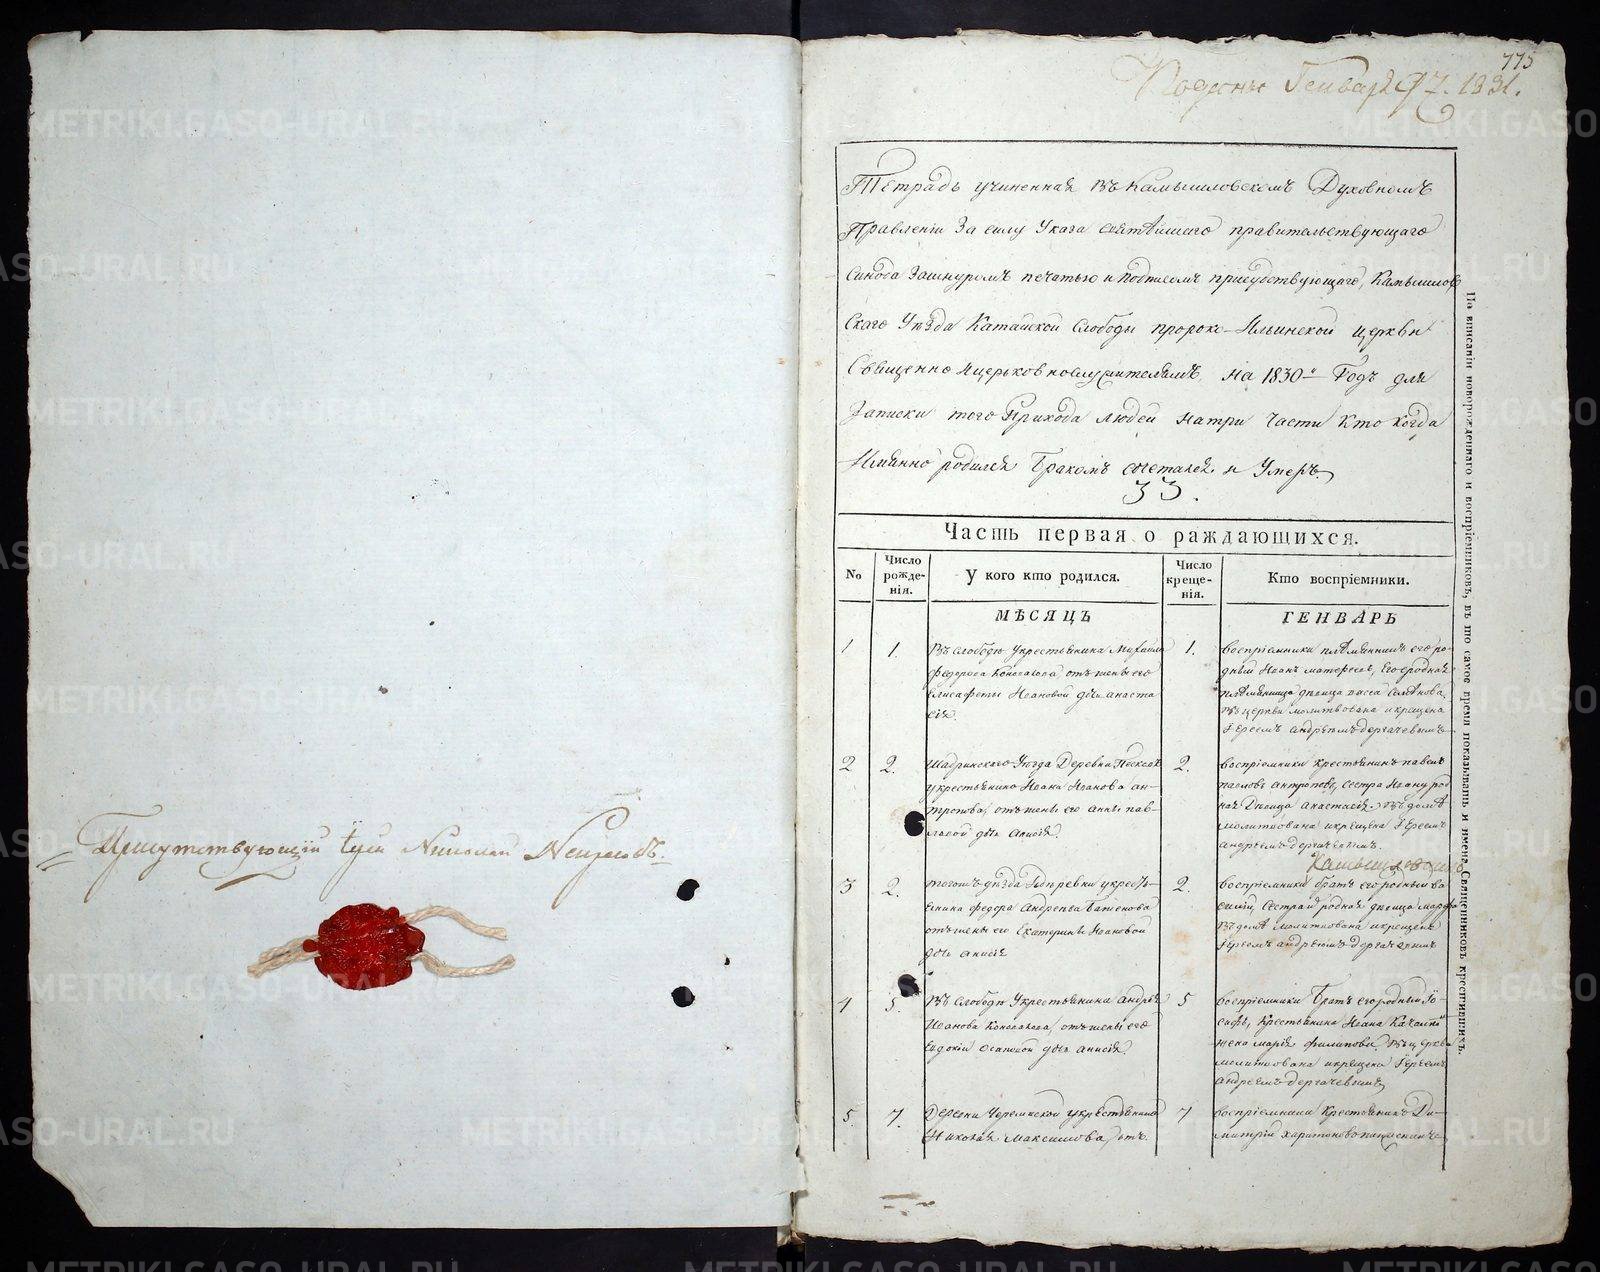 Присутствующий Іерей Николай
775
Поданы Генваря 1831.
Тетрадь учиненная въ Камышловскомъ Духовномъ
Правленіи За силу Указа святѣйшаго правительствующаго
Синода Зашнуромъ печатью и подписомъ присудствующаго, Камышлов
скаго Уѣзда Катайской Слободы пророко-Ильинской церкви
Священно ицерковнослужителямъ, на 1830й Годъ для
Записки того Прихода людей натри части кто когда
Имянно родился Бракомъ сочетался и Умеръ.
33.
Часть первая о раждающихся.
No
Число рожде-нія.
У кого кто родился.
Число креще-нія.
Кто воспріемники.
МѢСЯЦЪ
ГЕНВАРЬ
1
1.
Въ слободѣ Укрестьянина Михайла
Федорова отжены его
Елисафеты Ивановой дочь анаста
сія.
1.
воспріемники его ро-
дный Иванъ Его родная
девица
въ церкви молитвована икрещена
Іереемъ андреемъ дергачевымъ
2
2.
Шадринскаго Уѣзда Деревни
укрестьянина Ивана Иванова ан-
тропова, отжены его анны пав-
ловой дочь Анисія.
2.
воспріемники крестьянинъ павелъ
павловъ антроповъ, сестра Ивану род
ная девица анастасія. въ домѣ
молитвована икрещена Іереемъ
андреемъ дергачевымъ.
3
2.
тогожъ уѣзда укресть-
янина федора Андреева
отжены его Екатерины Ивановой
дочь анисія
2.
воспріемники братъ его родный ва
силій, Сестра родная девица марфа
въ домѣ молитвована икрещена
Іереемъ андреемъ дергачевымъ
4
5.
Въ Слободѣ Укрестьянина Андрея
Иванова отжены его
Евдокіи Осиповой дочь анисія.
5
воспріемники Братъ его родный Іо-
сифъ, крестьянина Ивана
жена марія филипова. въ церкви
молитвована икрещена Іереемъ
андреемъ дергачевымъ
5.
7.
Деревни Черемиской укрестьянина
Николая Максимова, отъ
7
воспріемники Крестьянинъ Ди-
митрій
По вписаніи новорожденнаго и воспріемниковъ, въ то самое время показывать и имена Священниковъ крестившихъ.
METRIKI.GASO-URAL.RU